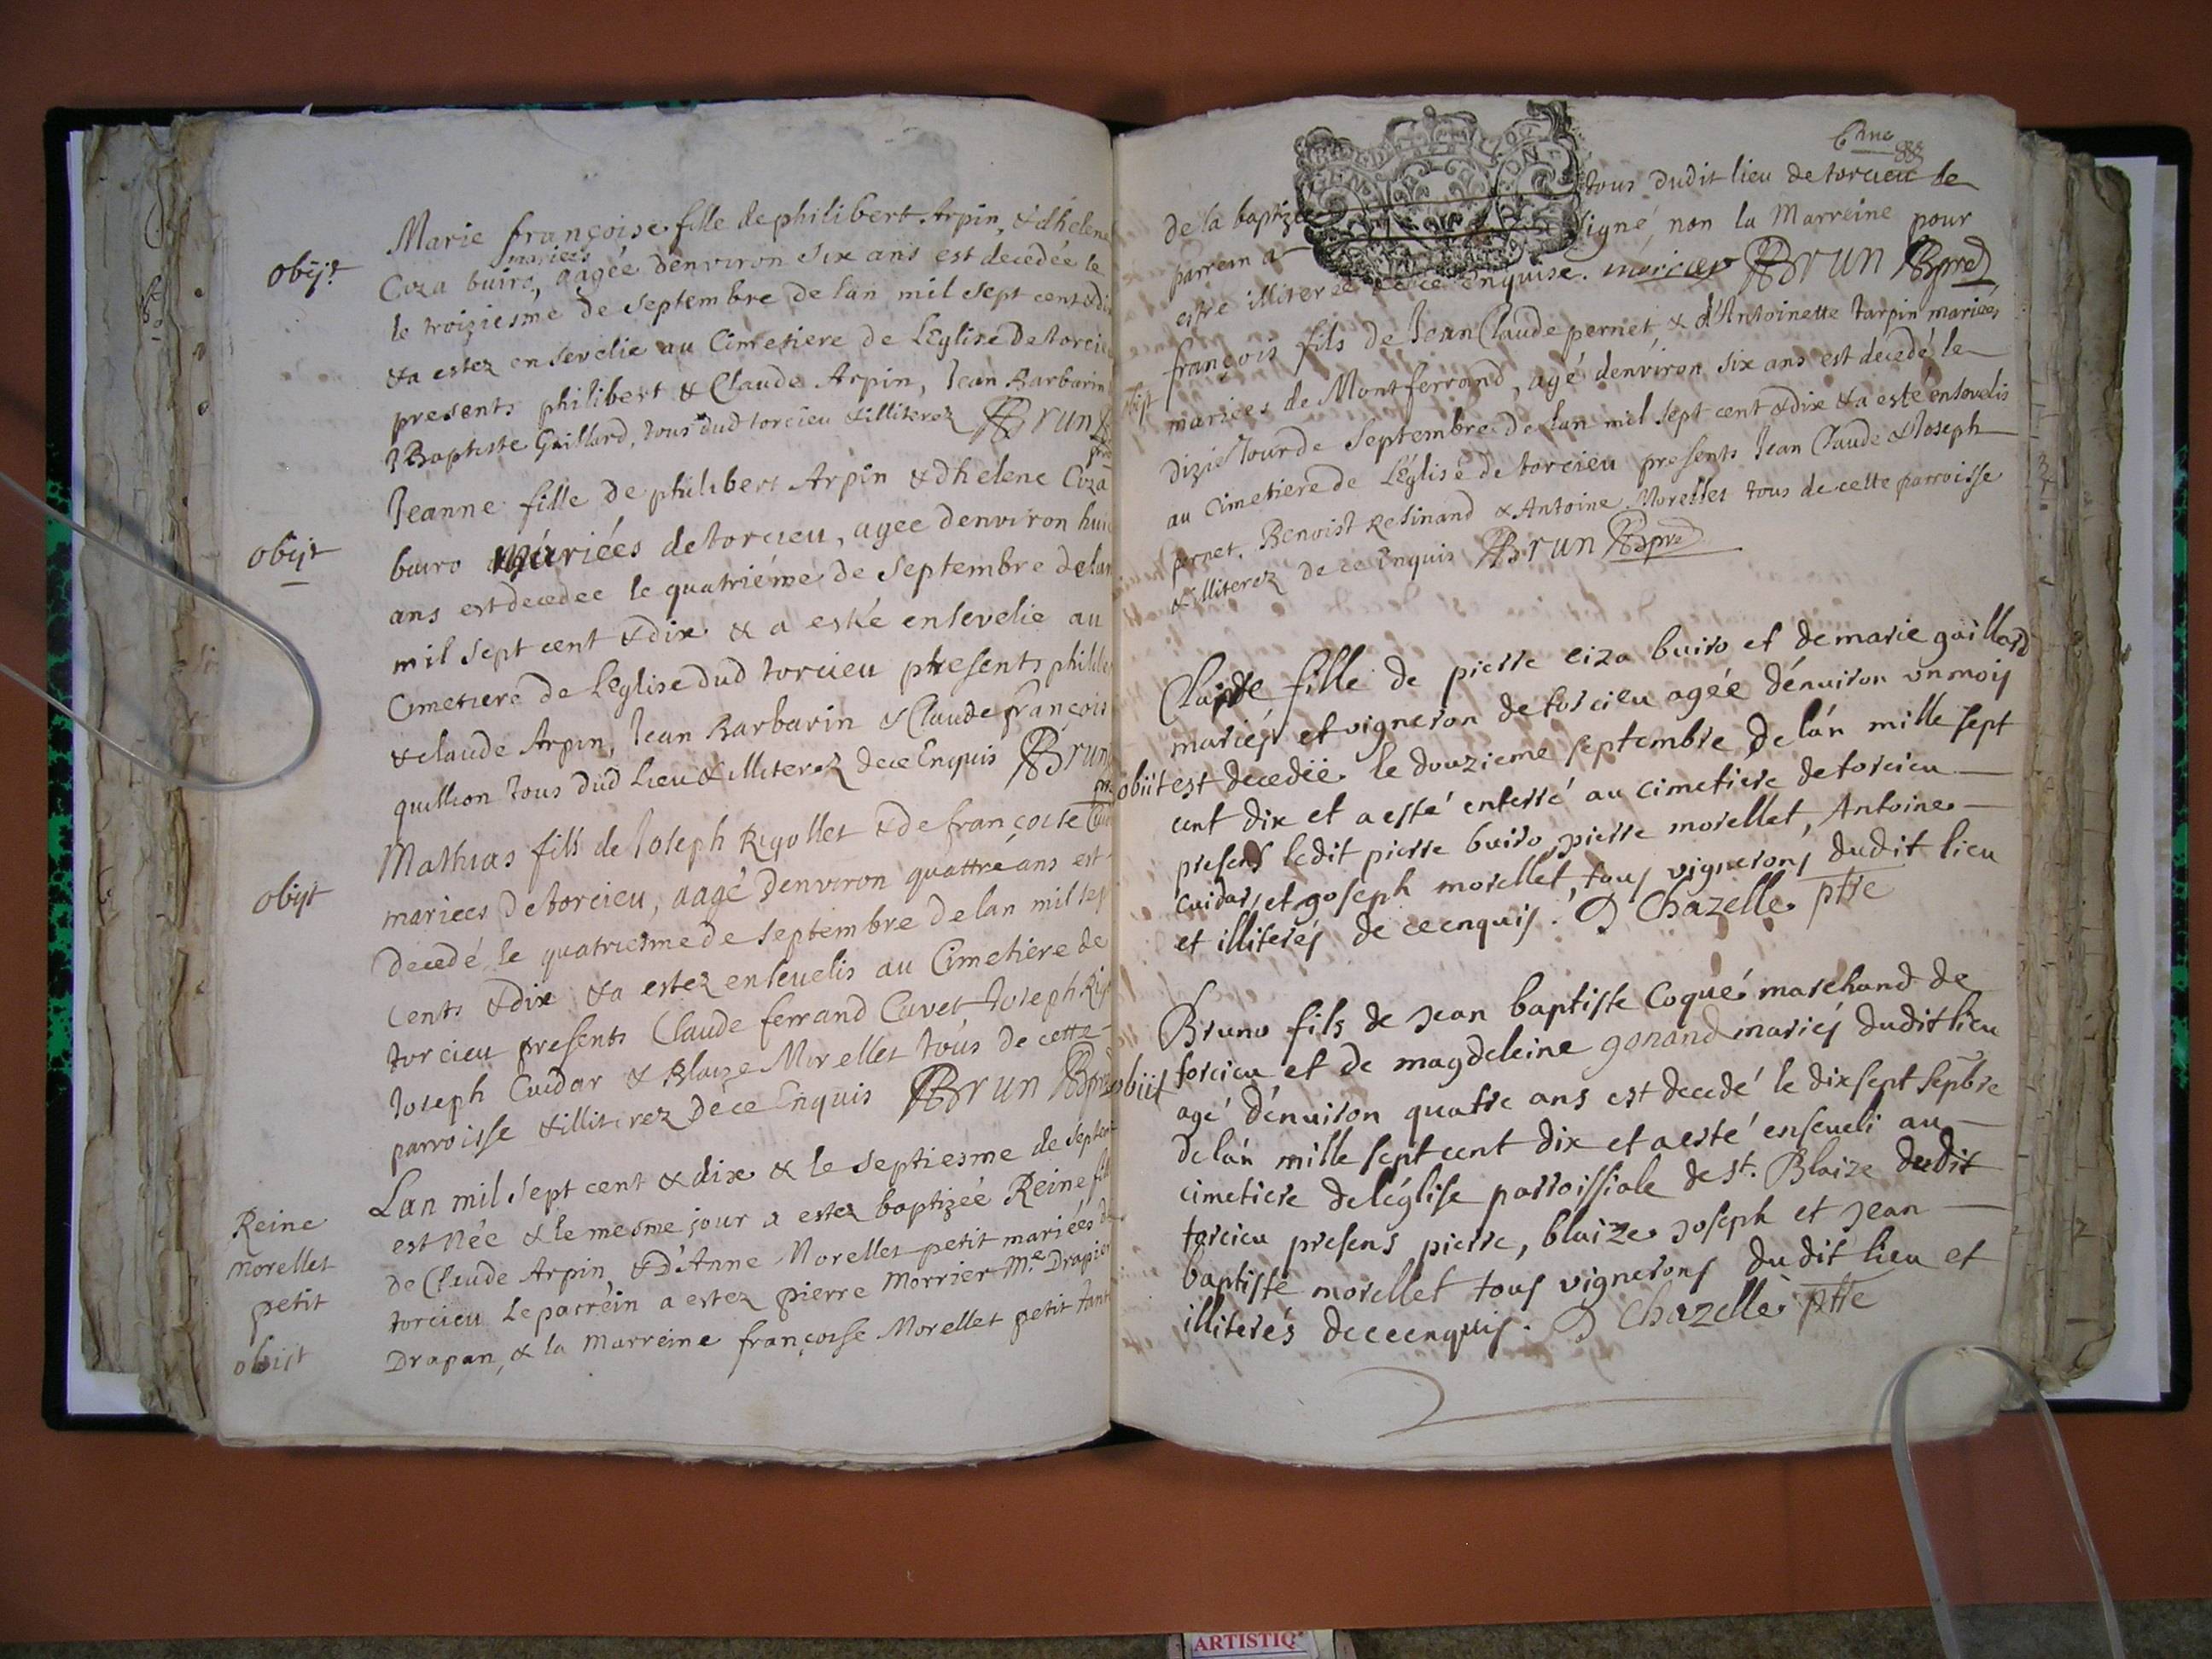 obijt
Marie françoise fille de philibert Arpin, & dhelene
mariees
Ciza buiro, aagée denviron six ans est decedée le
le troiziesme de Septembre de lan mil sept cent & di
& a estez ensevelie au Cimetiere de LEglise de torcieu
presents philibert & Claude Arpin, Jean Barbarin
J Baptiste Gaillard, tous dud torcieu & illiterez Brun
obijt
Jeanne fille de philibert Arpin & dhelene Ciza
buiro mariées de torcieu, agee denviron huic
ans est decedee le quatriéme de Septembre de lan
mil sept cent & dix & a esté ensevelie au
Cimetiere de LEglise dud torcieu presents philib
& claude Arpin, Jean Barbarin & Claude françois
quillion tous dud Lieu & illiterez de ce Enquis Brun
obijt
Mathias fils de Joseph Rigollet & de francoise
mariees de torcieu, aagé denviron quattre ans est
decedé le quatriesme de Septembre de lan mil sep
cents & dix & a estez ensevelis au Cimetiere de
torcieu presents Claude ferrand Cuvet Joseph Rig
Joseph Cuidar & Blaize Morellet tous de cette
parroisse & illiterez de ce Enquis Brun
Reine
morellet
petit
obiit
Lan mil sept cent & dix & le septiesme de septem
est née & le mesme jour a estez baptizée Reine fill
de Claude Arpin, & d'Anne Morellet petit mariées de
torcieu Le parrein a estez pierre Morrier Me Drapier
Drapan, & la Marreine françoise Morellet petit tant
de la baptizée tous dudit lieu de torcieu le
parrein a signé, non la Marreine pour
estre illiteree de ce enquise. morier Brun
françois fils de Jean Claude pernet, & d'Antoinette tarpin mariées
mariees de Montferrand, agé denviron six ans est decedé le
dizie Jour de Septembre de lan mil sept cent & dix & a esté ensevelis
au cimetiere de LEglise de torcieu presents Jean Claude & Joseph
pernet, Benoist Resinand & Antoine Morellet tous de cette parroisse
& illiterez de ce Enquis Brun
obiit
Claude fille de pierre ciza buiro et de marie gaillard
mariés et vigneron de torcieu agée dénuiron un mois
est decedéé le douzieme septembre de lán mille sept
cent dix et a esté enterré au cimetiere de torcieu
presens ledit pierre buiro, pierre morellet, Antoine
cuidar, et joseph morellet, tous vignerons dudit lieu
et illiterés de ce enquis. D Chazelle ptre
obiit
Bruno fils de jean baptiste Coqué marchand de
torcieu et de magdeleine gonand mariés dudit lieu
agé dénuiron quatre ans est decedé le dixsept sepbre
de lán mille sept cent dix et a esté enseueli au
cimetiere de léglise parroissiale de st. Blaize dudit
torcieu presens pierre, blaize joseph et jean
baptiste morellet tous vignerons dudit lieu et
illiterés de ce enquis. D Chazelle ptre
ARTISTIQ